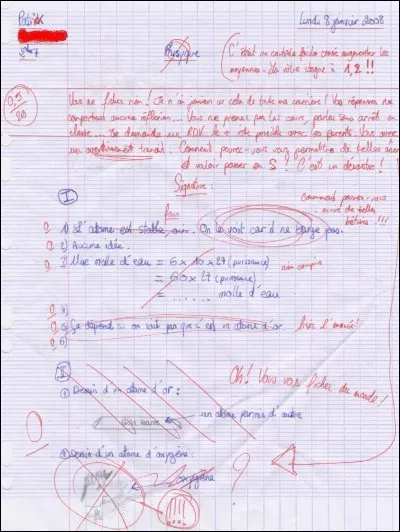 Patrick
Lundi 8 janvier 2008
2de7
Physique
C'était un contrôle facile censé augmenter les
moyennes. La vôtre stagne à 1,2 !!
0,5/20
Vous ne fichez rien ! Je n'ai jamais vu cela de toute ma carrière ! Vos réponses ne
comportent aucune réflexion... Vous ne prenez pas les cours, parlez sans arrêt en
classe... Je demande un RDV le + vite possible avec les parents. Vous avez
un avertissement travail. Comment pouvez-vous vous permettre de telles
et vouloir passer en S ? C'est un désastre !
Signature :
I
comment pouvez-vous
écrire de telles
bêtises !!!
0 1) L'atome est stable, On le voit car il ne bouge pas.
0 2) Aucune idée.
0 3) Une molle d'eau = 6 x 10 x 27 (puissance)
non compris
= 60 x 27 (puissance)
= ...... molle d'eau
0 4)
0 5) Ça dépend si on sait pas que c'est un atome d'or.
0 6)
II
Oh! Vous vous fichez du monde !
1) Dessin d'un atome d'or :
un atome parmis d'autre
0
2) Dessin d'un atome d'oxygène
oxygène
?
!!!!